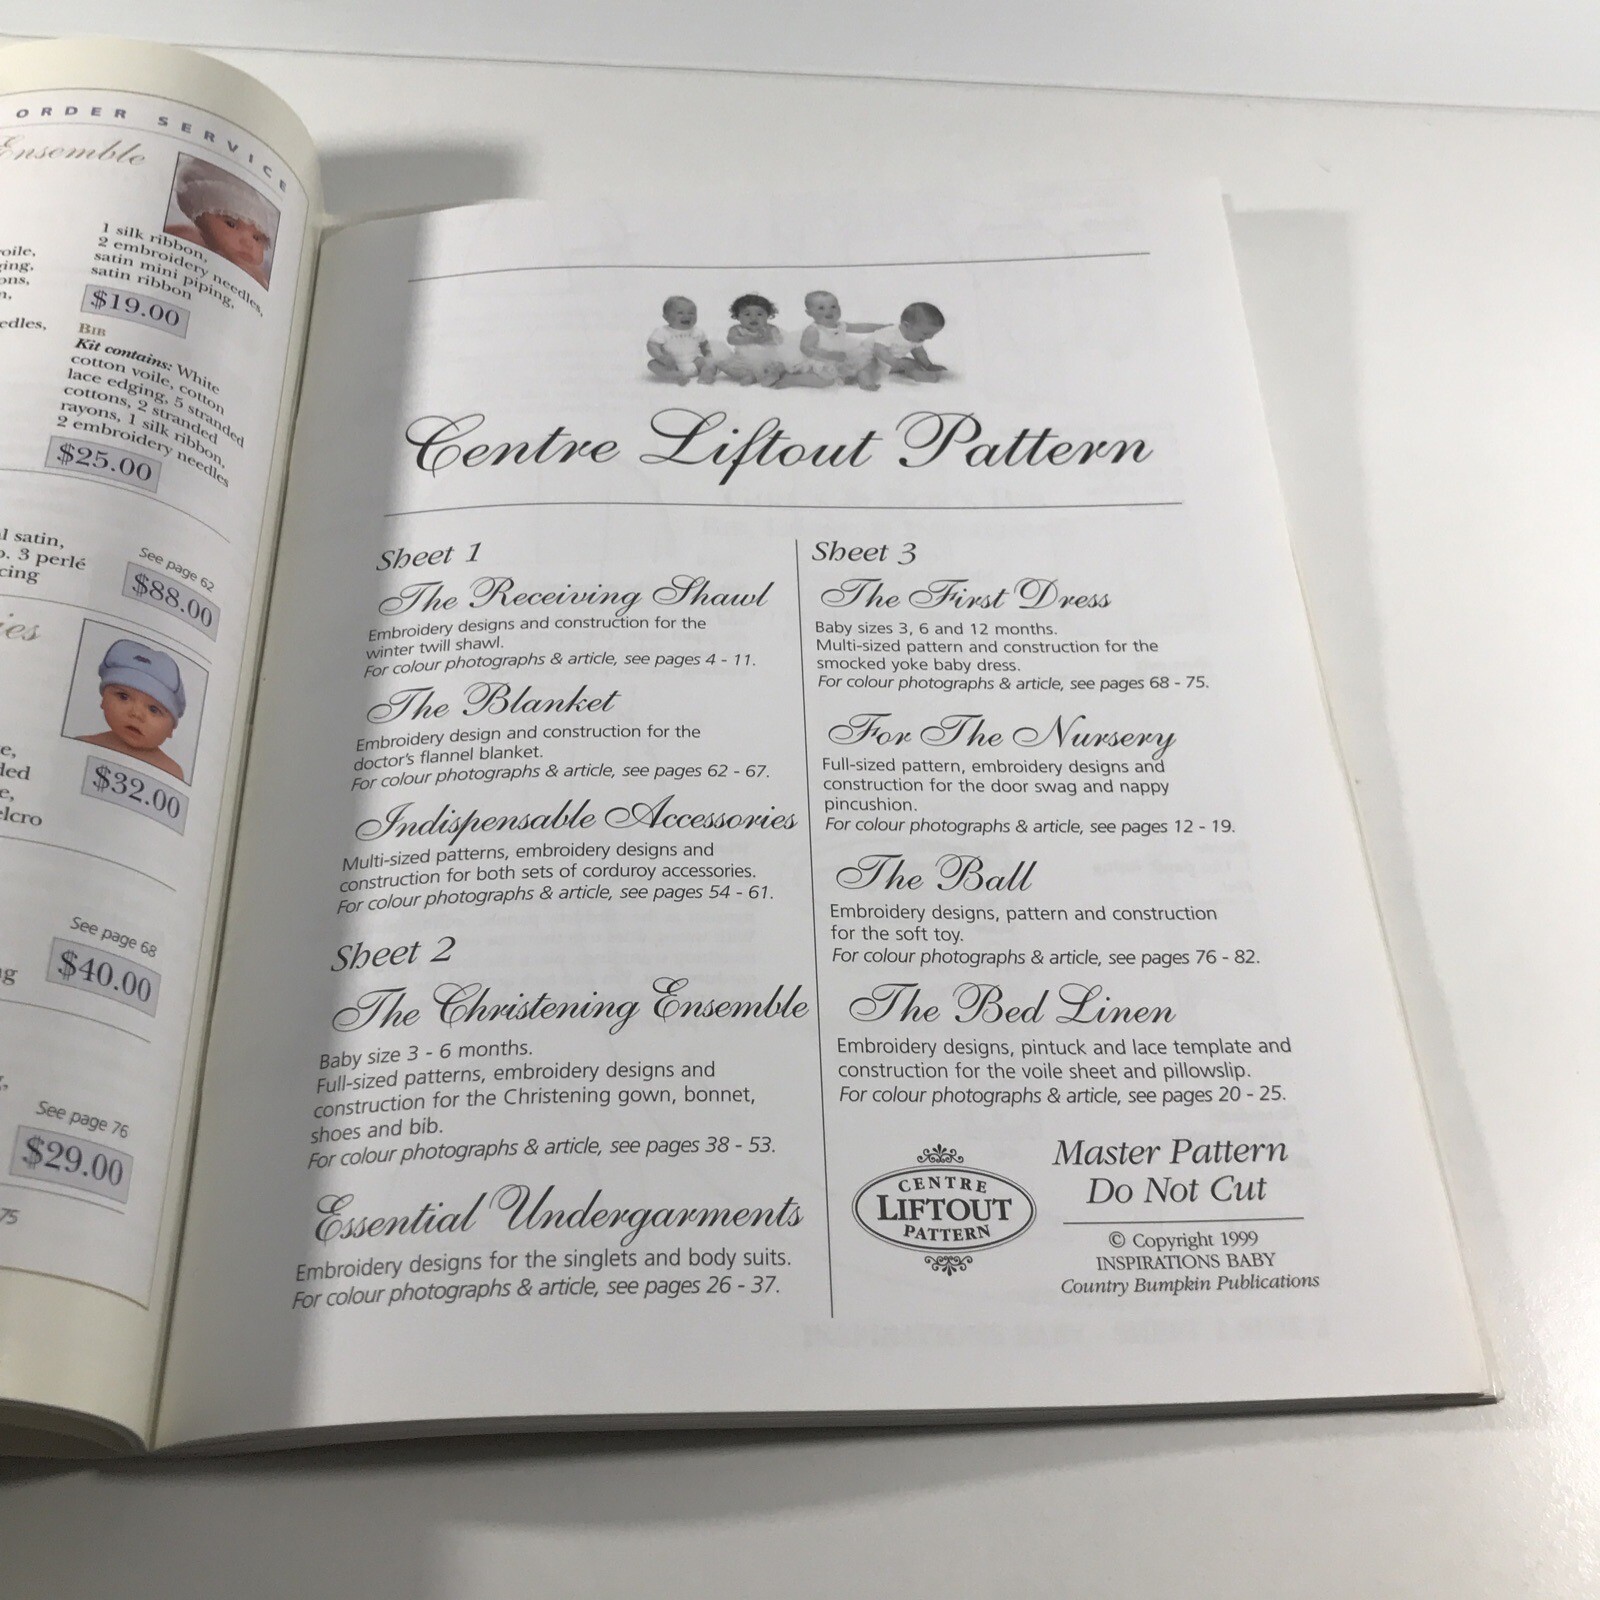 ORDER SERVICE
Ensemble
1 silk ribbon,
2 embroidery needles,
satin mini piping,
satin ribbon
$19.00
BIB
Kit contains: White
cotton voile, cotton
lace edging, 5 stranded
cottons, 2 stranded
rayons, 1 silk ribbon,
2 embroidery needles
$25.00
satin,
3 perlé
See page 62
$88.00
$32.00
See page 68
$40.00
See page 76
$29.00
75
Centre Liftout Pattern
Sheet 1
The Receiving Shawl
Embroidery designs and construction for the
winter twill shawl.
For colour photographs & article, see pages 4 - 11.
The Blanket
Embroidery design and construction for the
doctor's flannel blanket.
For colour photographs & article, see pages 62 - 67.
Indispensable Accessories
Multi-sized patterns, embroidery designs and
construction for both sets of corduroy accessories.
For colour photographs & article, see pages 54 - 61.
Sheet 2
The Christening Ensemble
Baby size 3 - 6 months.
Full-sized patterns, embroidery designs and
construction for the Christening gown, bonnet,
shoes and bib.
For colour photographs & article, see pages 38 - 53.
Essential Undergarments
Embroidery designs for the singlets and body suits.
For colour photographs & article, see pages 26 - 37.
Sheet 3
The First Dress
Baby sizes 3, 6 and 12 months.
Multi-sized pattern and construction for the
smocked yoke baby dress.
For colour photographs & article, see pages 68 - 75.
For The Nursery
Full-sized pattern, embroidery designs and
construction for the door swag and nappy
pincushion.
For colour photographs & article, see pages 12 - 19.
The Ball
Embroidery designs, pattern and construction
for the soft toy.
For colour photographs & article, see pages 76 - 82.
The Bed Linen
Embroidery designs, pintuck and lace template and
construction for the voile sheet and pillowslip.
For colour photographs & article, see pages 20 - 25.
CENTRE
LIFTOUT
PATTERN
Master Pattern
Do Not Cut
© Copyright 1999
INSPIRATIONS BABY
Country Bumpkin Publications